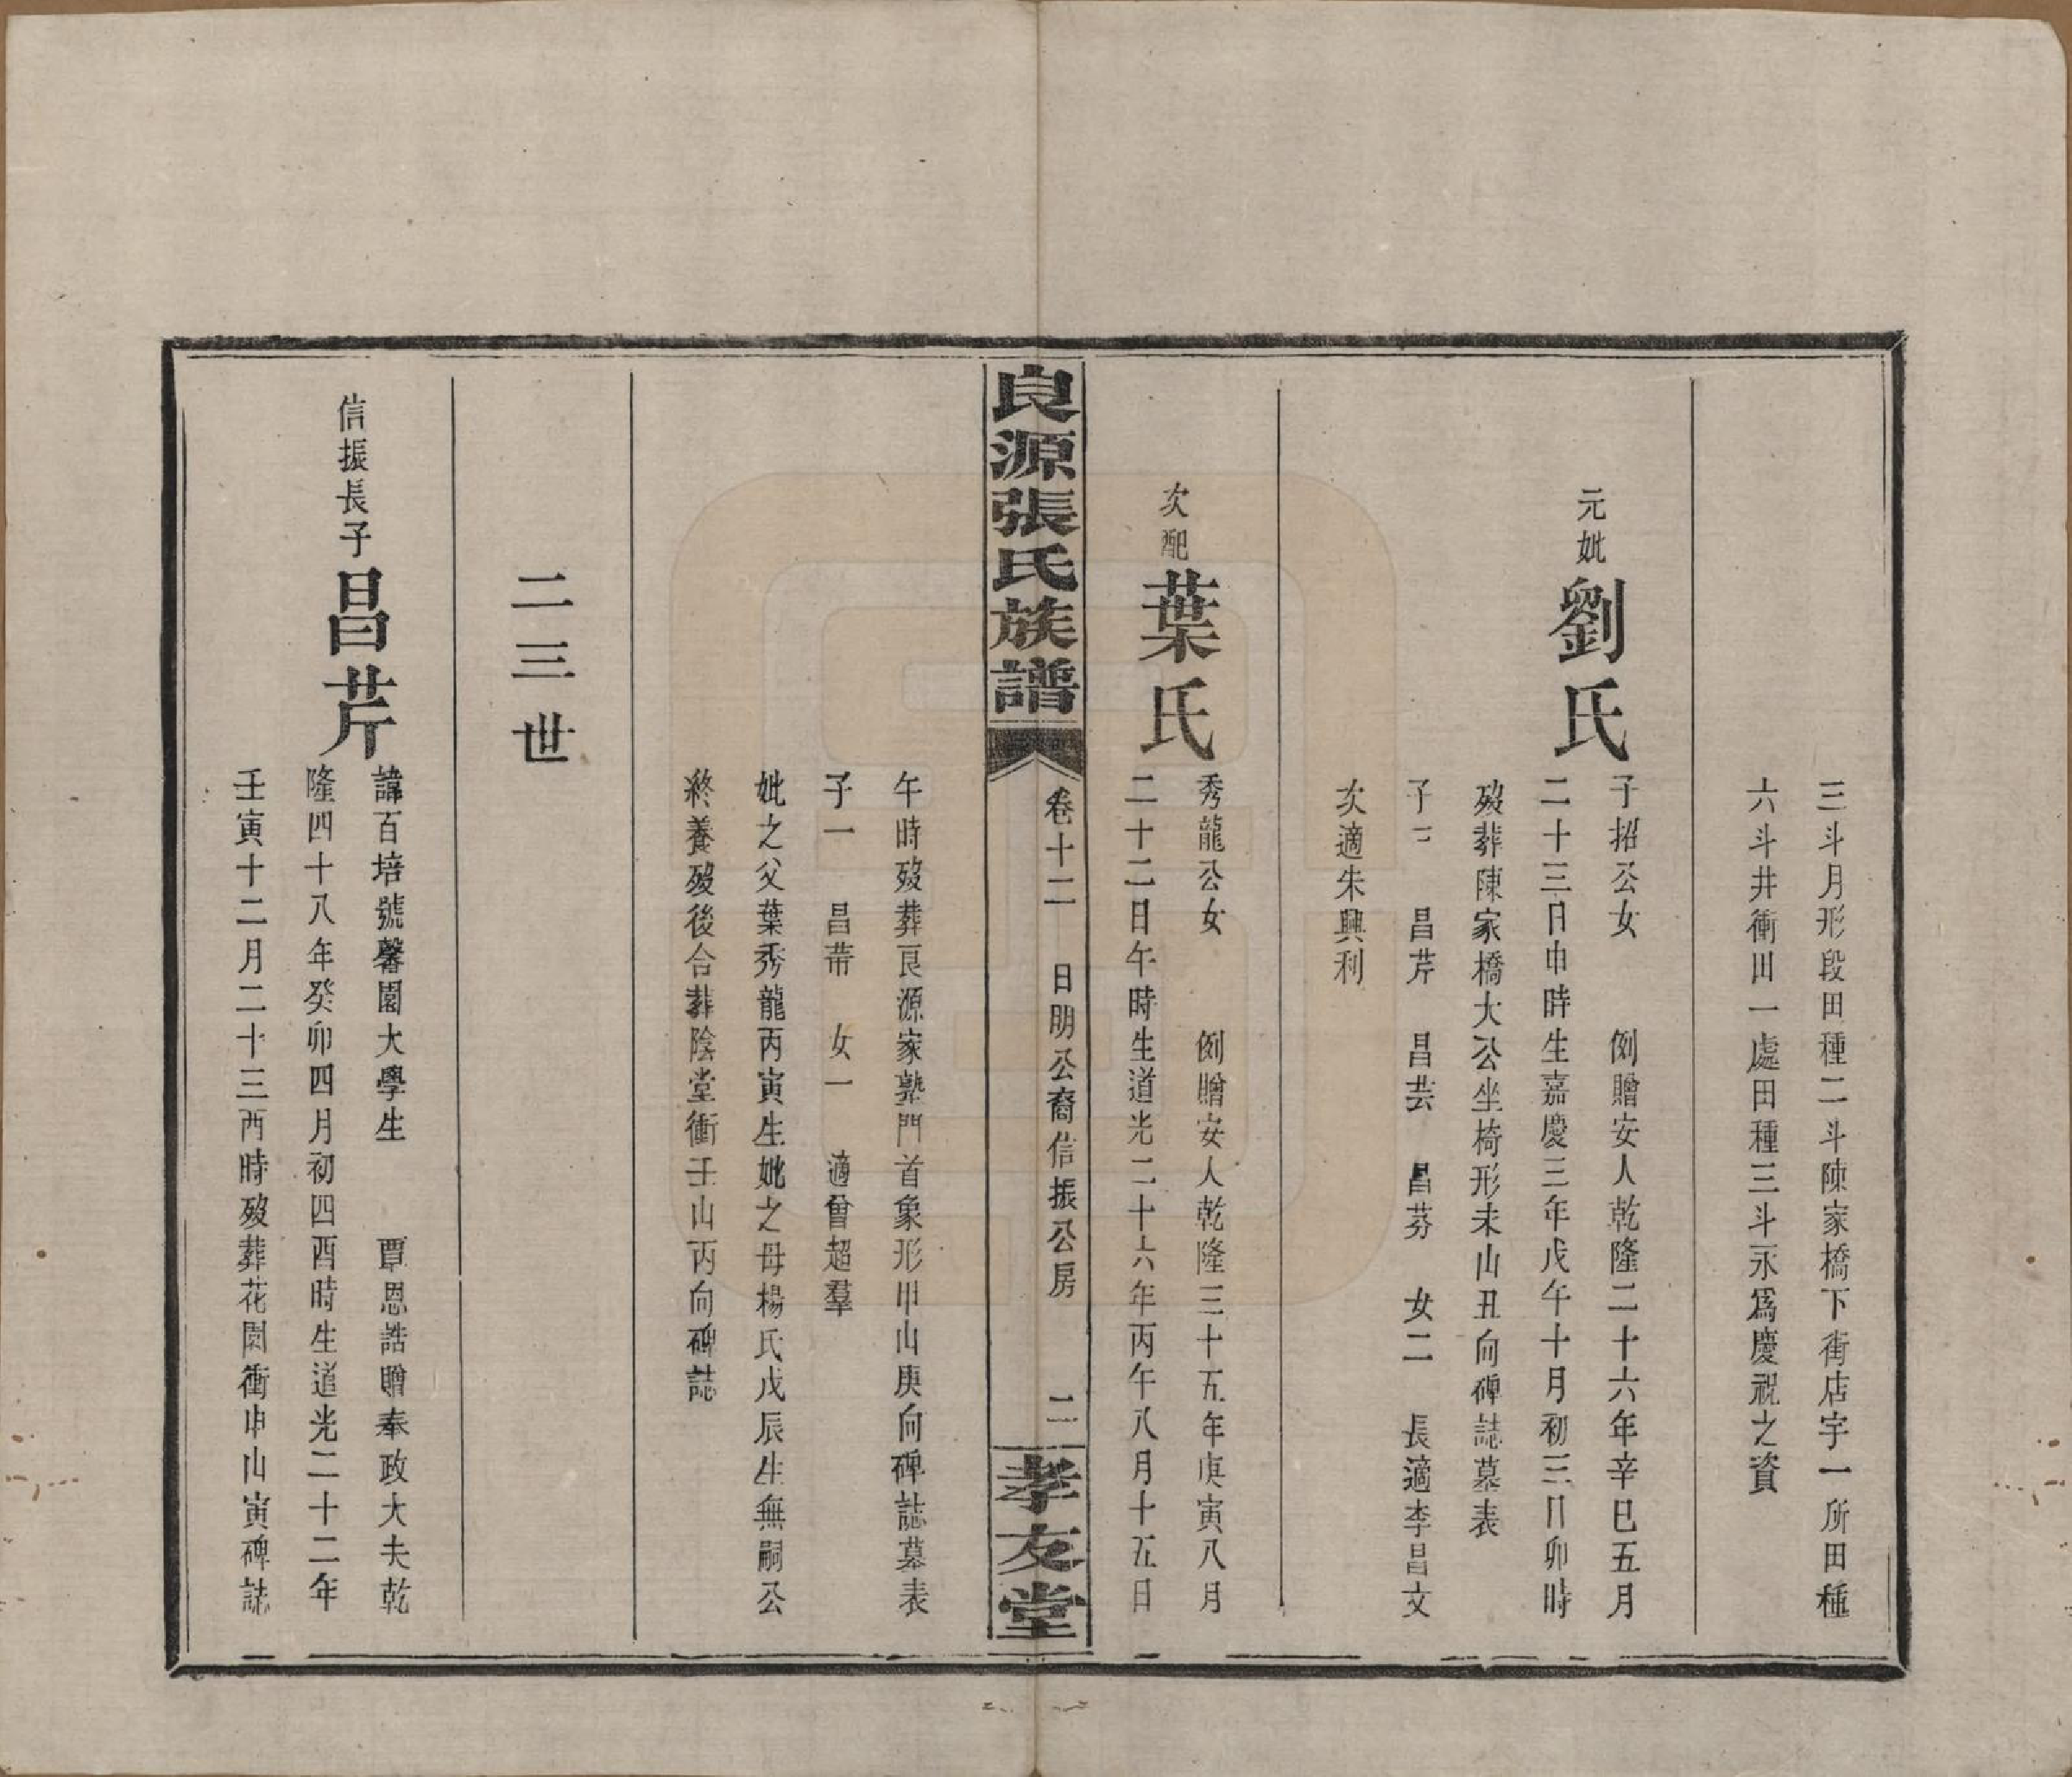 三斗月形段田種二斗陳家橋下街店宇一所田種
六斗井衝田一處田種三斗永爲慶祝之資
元妣劉氏
子招公女 例贈安人乾隆二十六年辛巳五月
二十三日申時生嘉慶三年戊午十月初三日卯時
歿葬陳家橋大公坐椅形未山丑向碑誌墓表
子三 昌芹 昌芸 昌芬 女二 長適李昌文
次適朱興利
次配葉氏
秀龍公女 例贈安人乾隆三十五年庚寅八月
二十二日午時生道光二十六年丙午八月十五日
良源張氏族譜 卷十二 日明公裔信振公房 二 孝友堂
午時歿葬良源家塾門首象形甲山庚向碑誌墓表
子一 昌芾 女一 適曾超羣
妣之父葉秀龍丙寅生妣之母楊氏戊辰生無嗣公
終養歿後合葬陰堂衝壬山丙向碑誌
二三世
信振長子昌芹
諱百培號馨園大學生 覃恩誥贈奉政大夫乾
隆四十八年癸卯四月初四酉時生道光二十二年
壬寅十二月二十三酉時歿葬花園衝申山寅碑誌